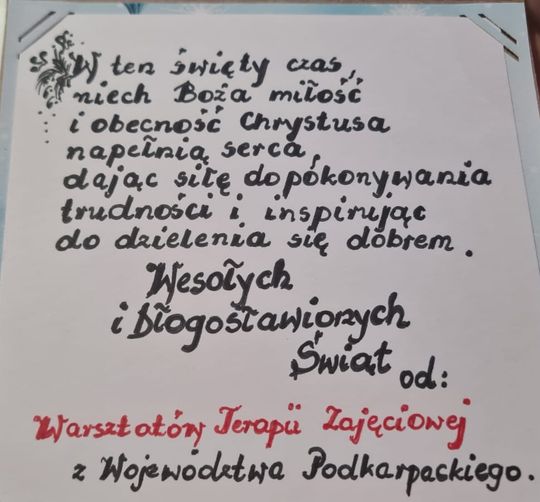 W ten święty czas,
niech Boża miłość
i obecność Chrystusa
napełnią serca,
dając siłę dopokonywania
trudności i inspirując
do dzielenia się dobrem.
Wesołych
i błogosławionych
Świąt od:
Warsztatów Terapii Zajęciowej
z Województwa Podkarpackiego.